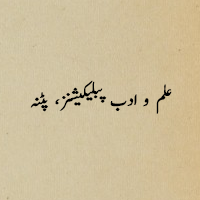 علم و ادب پبلیکیشنز، پٹنہ